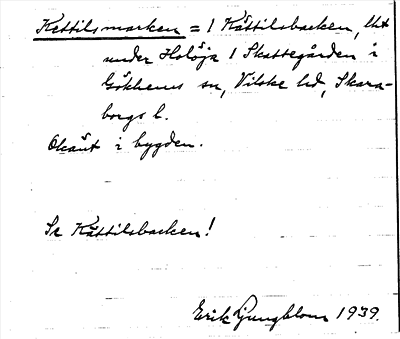 Kettilsmarken = 1 Kättilsbacken, lht
under Holöja 1 Skattegården i
Gökhems sn, Vilske hd, Skara-
borgs l.
Okänt i bygden.
Se Kättilsbacken!
Erik Ljungblom 1939.